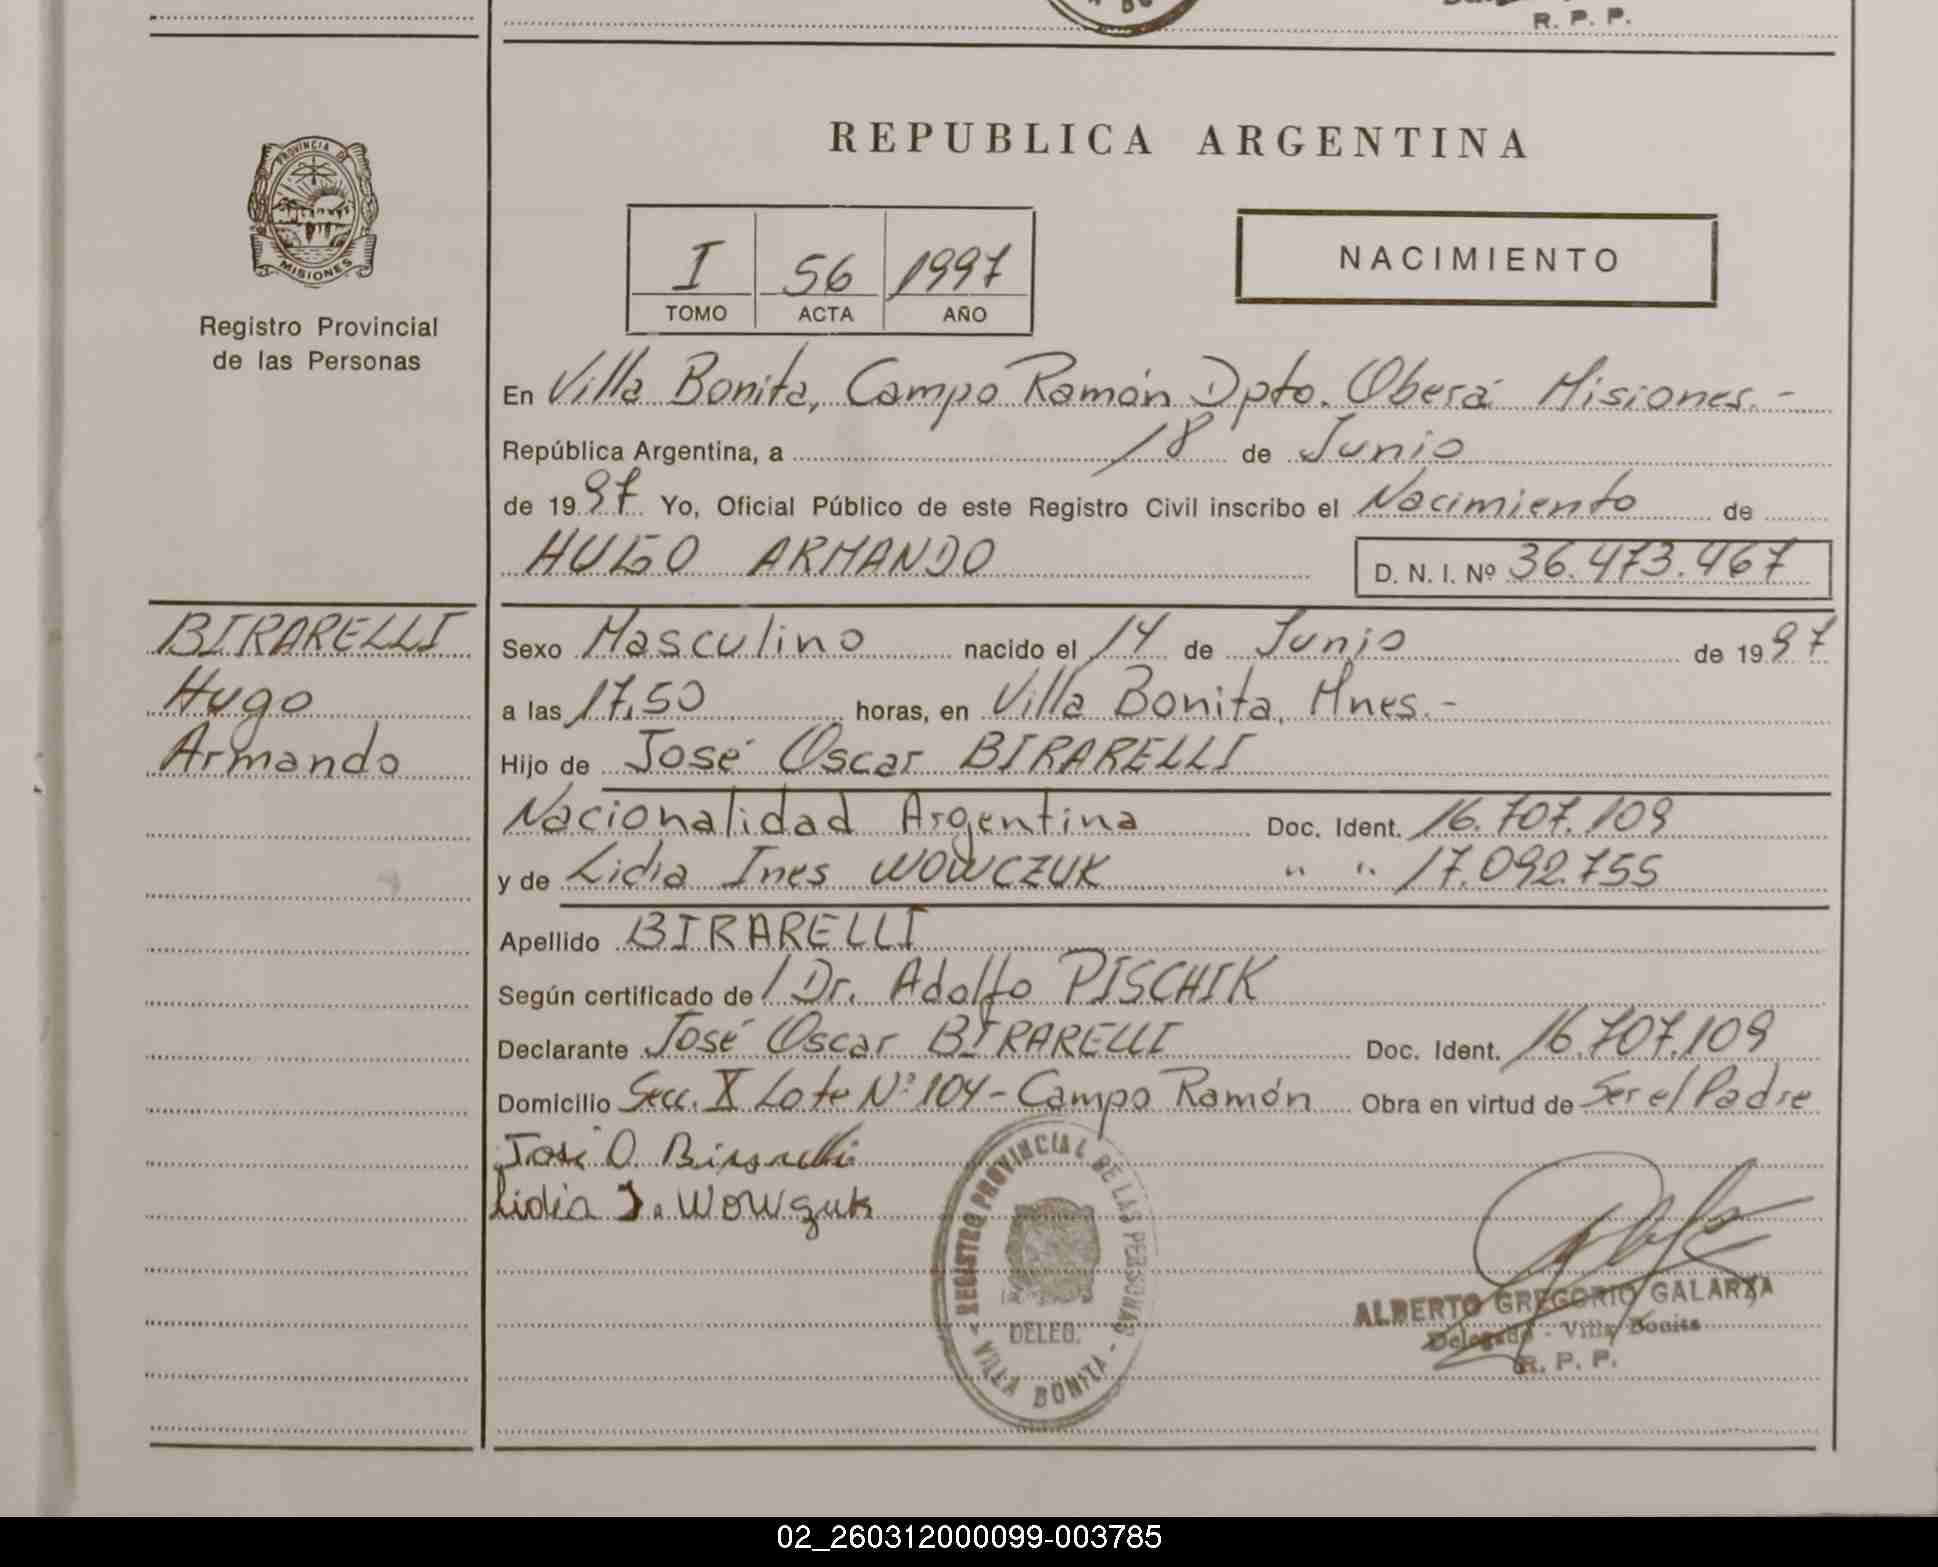 R. P. P.
PROVINCIA DE
MISIONES
Registro Provincial
de las Personas
REPUBLICA ARGENTINA
I 56 1997
TOMO ACTA AÑO
NACIMIENTO
En Villa Bonita, Campo Ramón Dpto. Oberá Misiones.-
República Argentina, a 18 de Junio
de 1997 Yo, Oficial Público de este Registro Civil inscribo el Nacimiento de
HUGO ARMANDO D. N. I. Nº 36.473.467
BIRARELLI
Hugo
Armando
Sexo Masculino nacido el 14 de Junio de 1997
a las 17,50 horas, en Villa Bonita, Mnes.-
Hijo de José Oscar BIRARELLI
Nacionalidad Argentina Doc. Ident. 16.707.109
y de Lidia Ines WOWCZUK " " 17.092.755
Apellido BIRARELLI
Según certificado de / Dr. Adolfo PISCHIK
Declarante José Oscar BIRARELLI Doc. Ident. 16.707.109
Domicilio Secc. X Lote Nº 104 - Campo Ramón Obra en virtud de Ser el Padre
José O. Birarelli
Lidia I. Wowczuk
REGISTRO PROVINCIAL DE LAS PERSONAS
DELEG.
- VILLA BONITA -
ALBERTO GREGORIO GALARZA
Delegado - Villa Bonita
R. P. P.
02_260312000099-003785